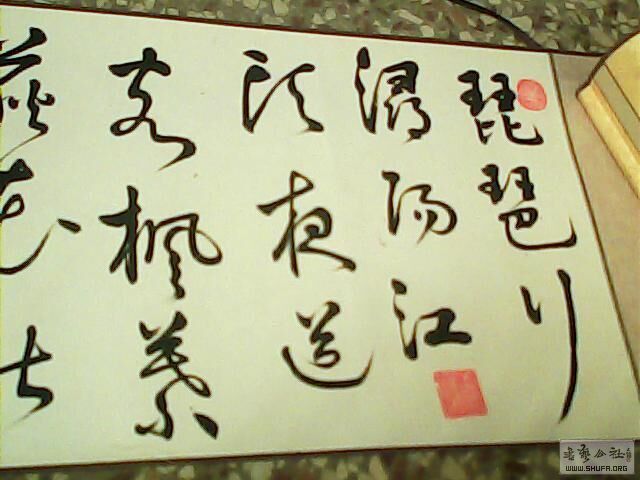 琵琶行
潯陽江
頭夜送
客楓葉
荻花
书艺公社
WWW.SHUFA.ORG